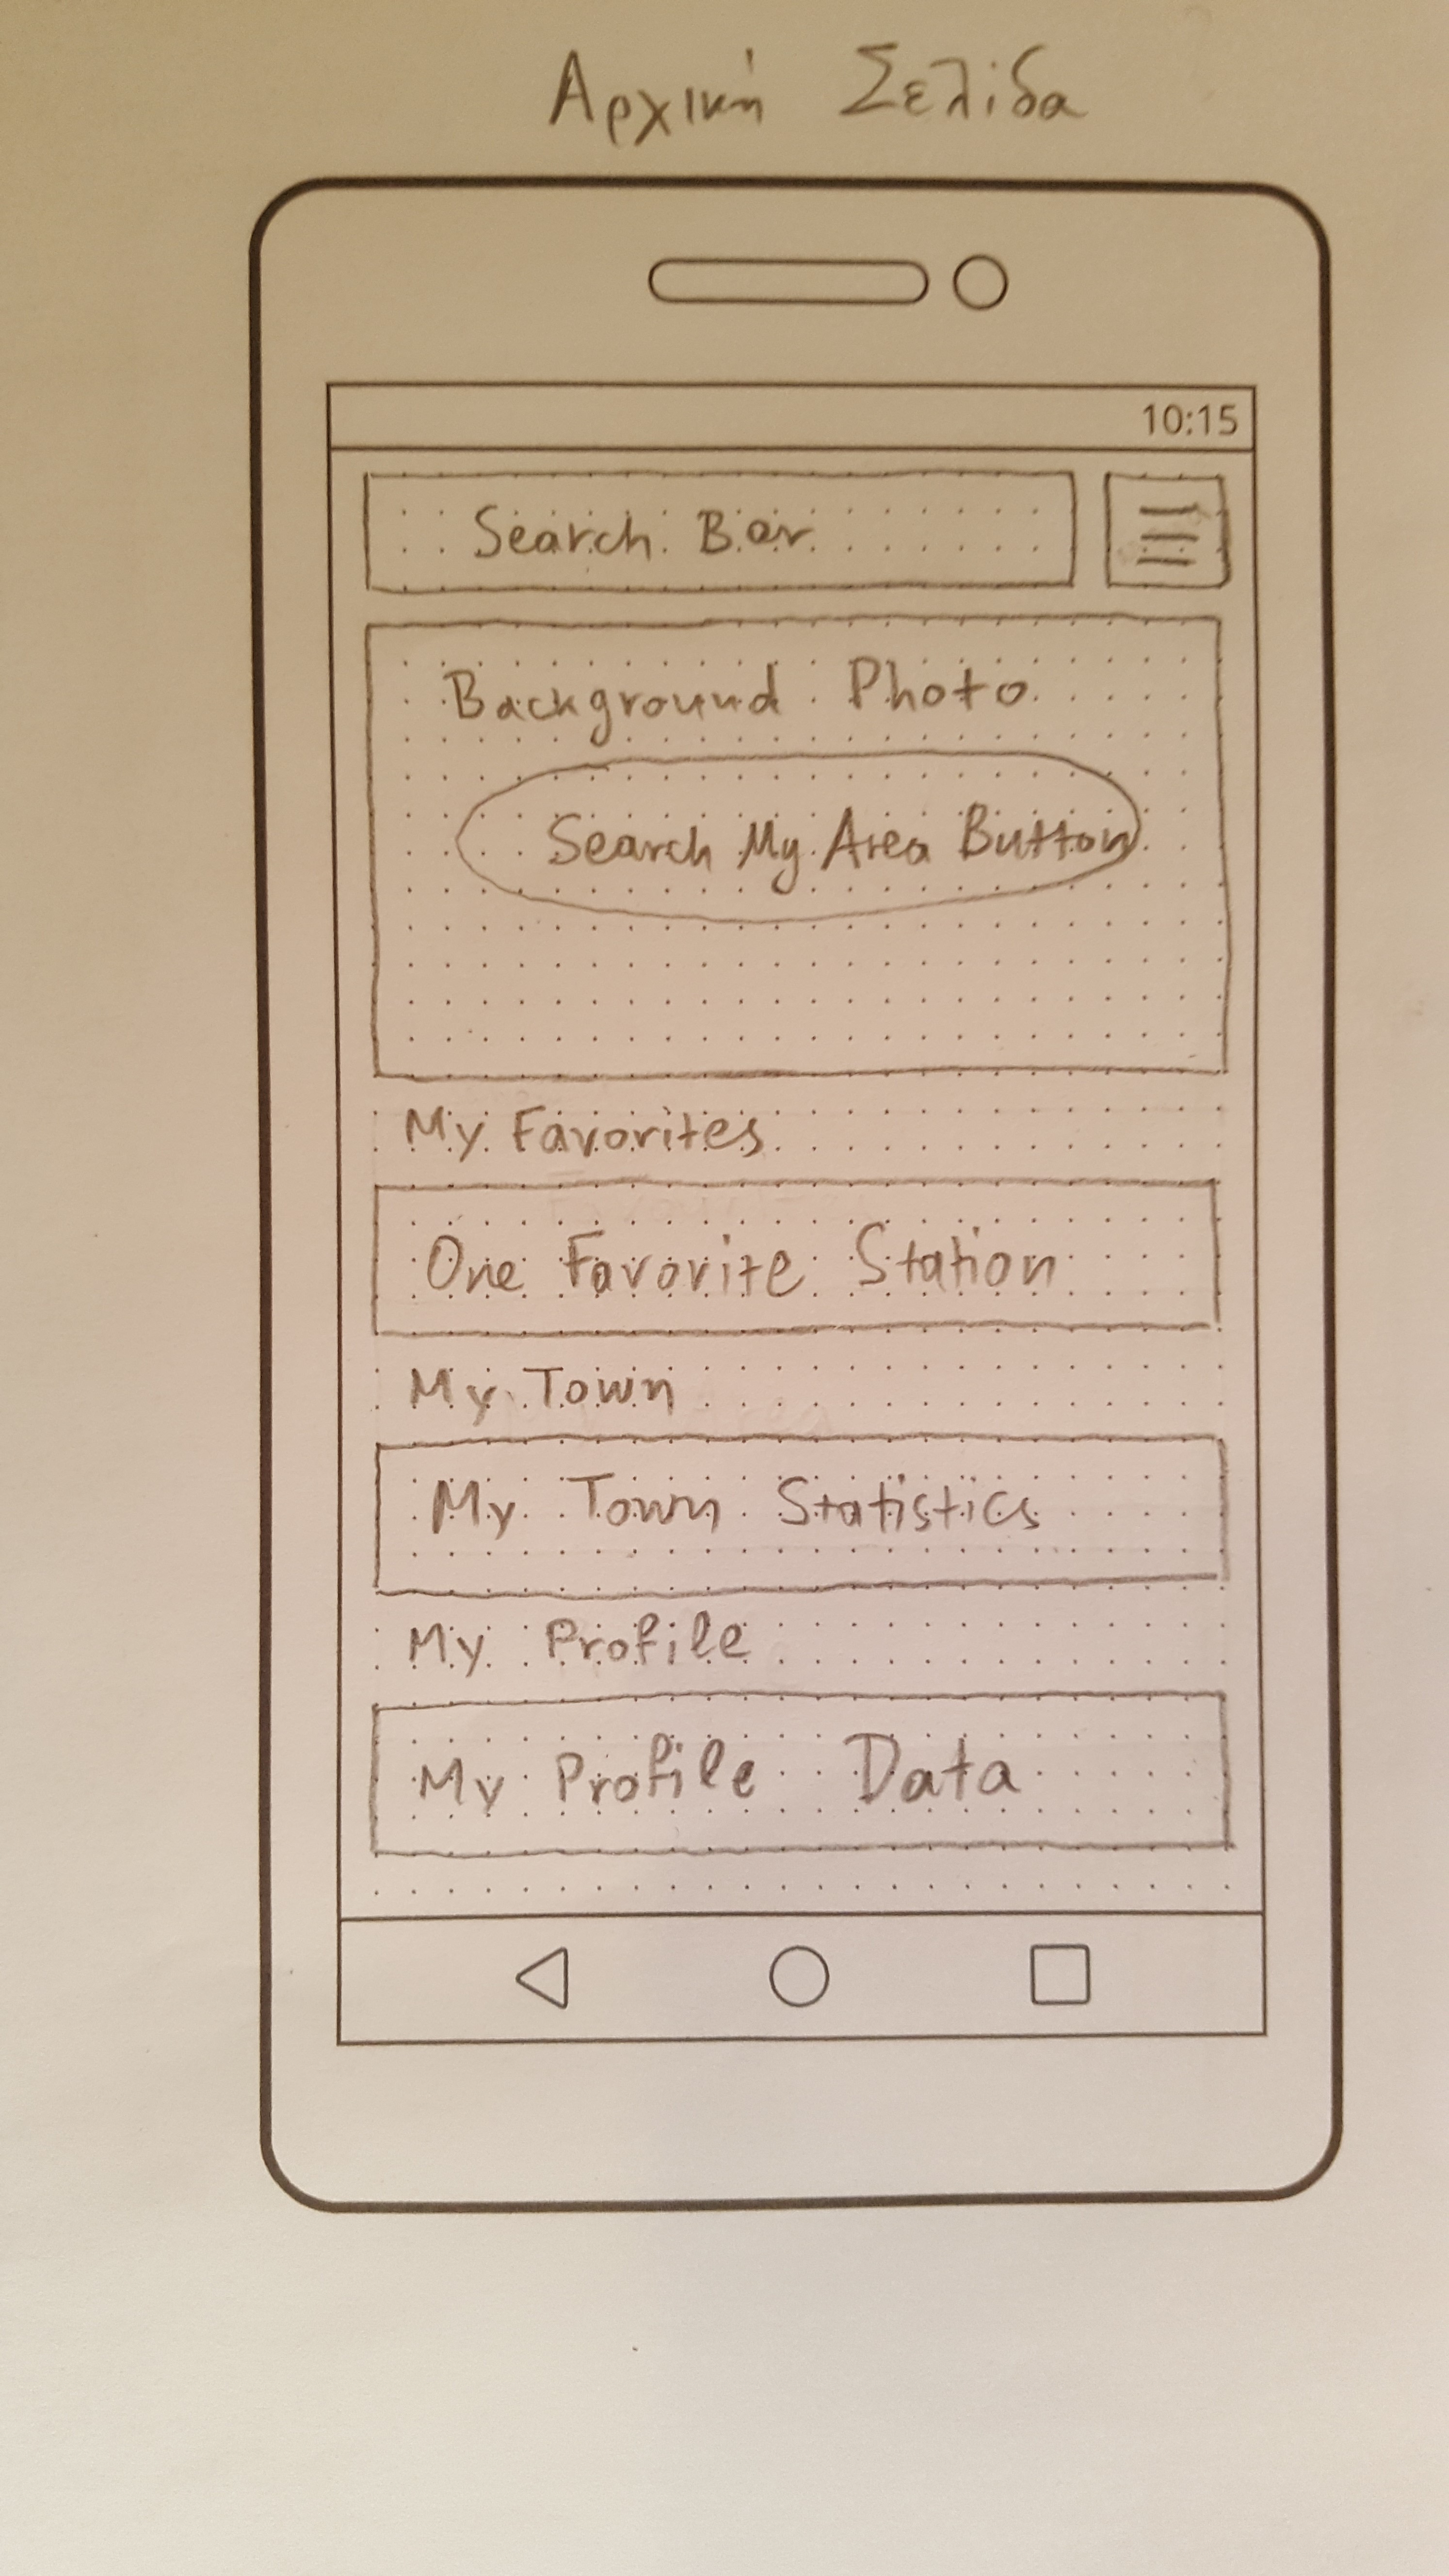 Αρχική Σελίδα
10:15
Search Bar
Background Photo
Search My Area Button
My Favorites
One Favorite Station
My Town
My Town Statistics
My Profile
My Profile Data